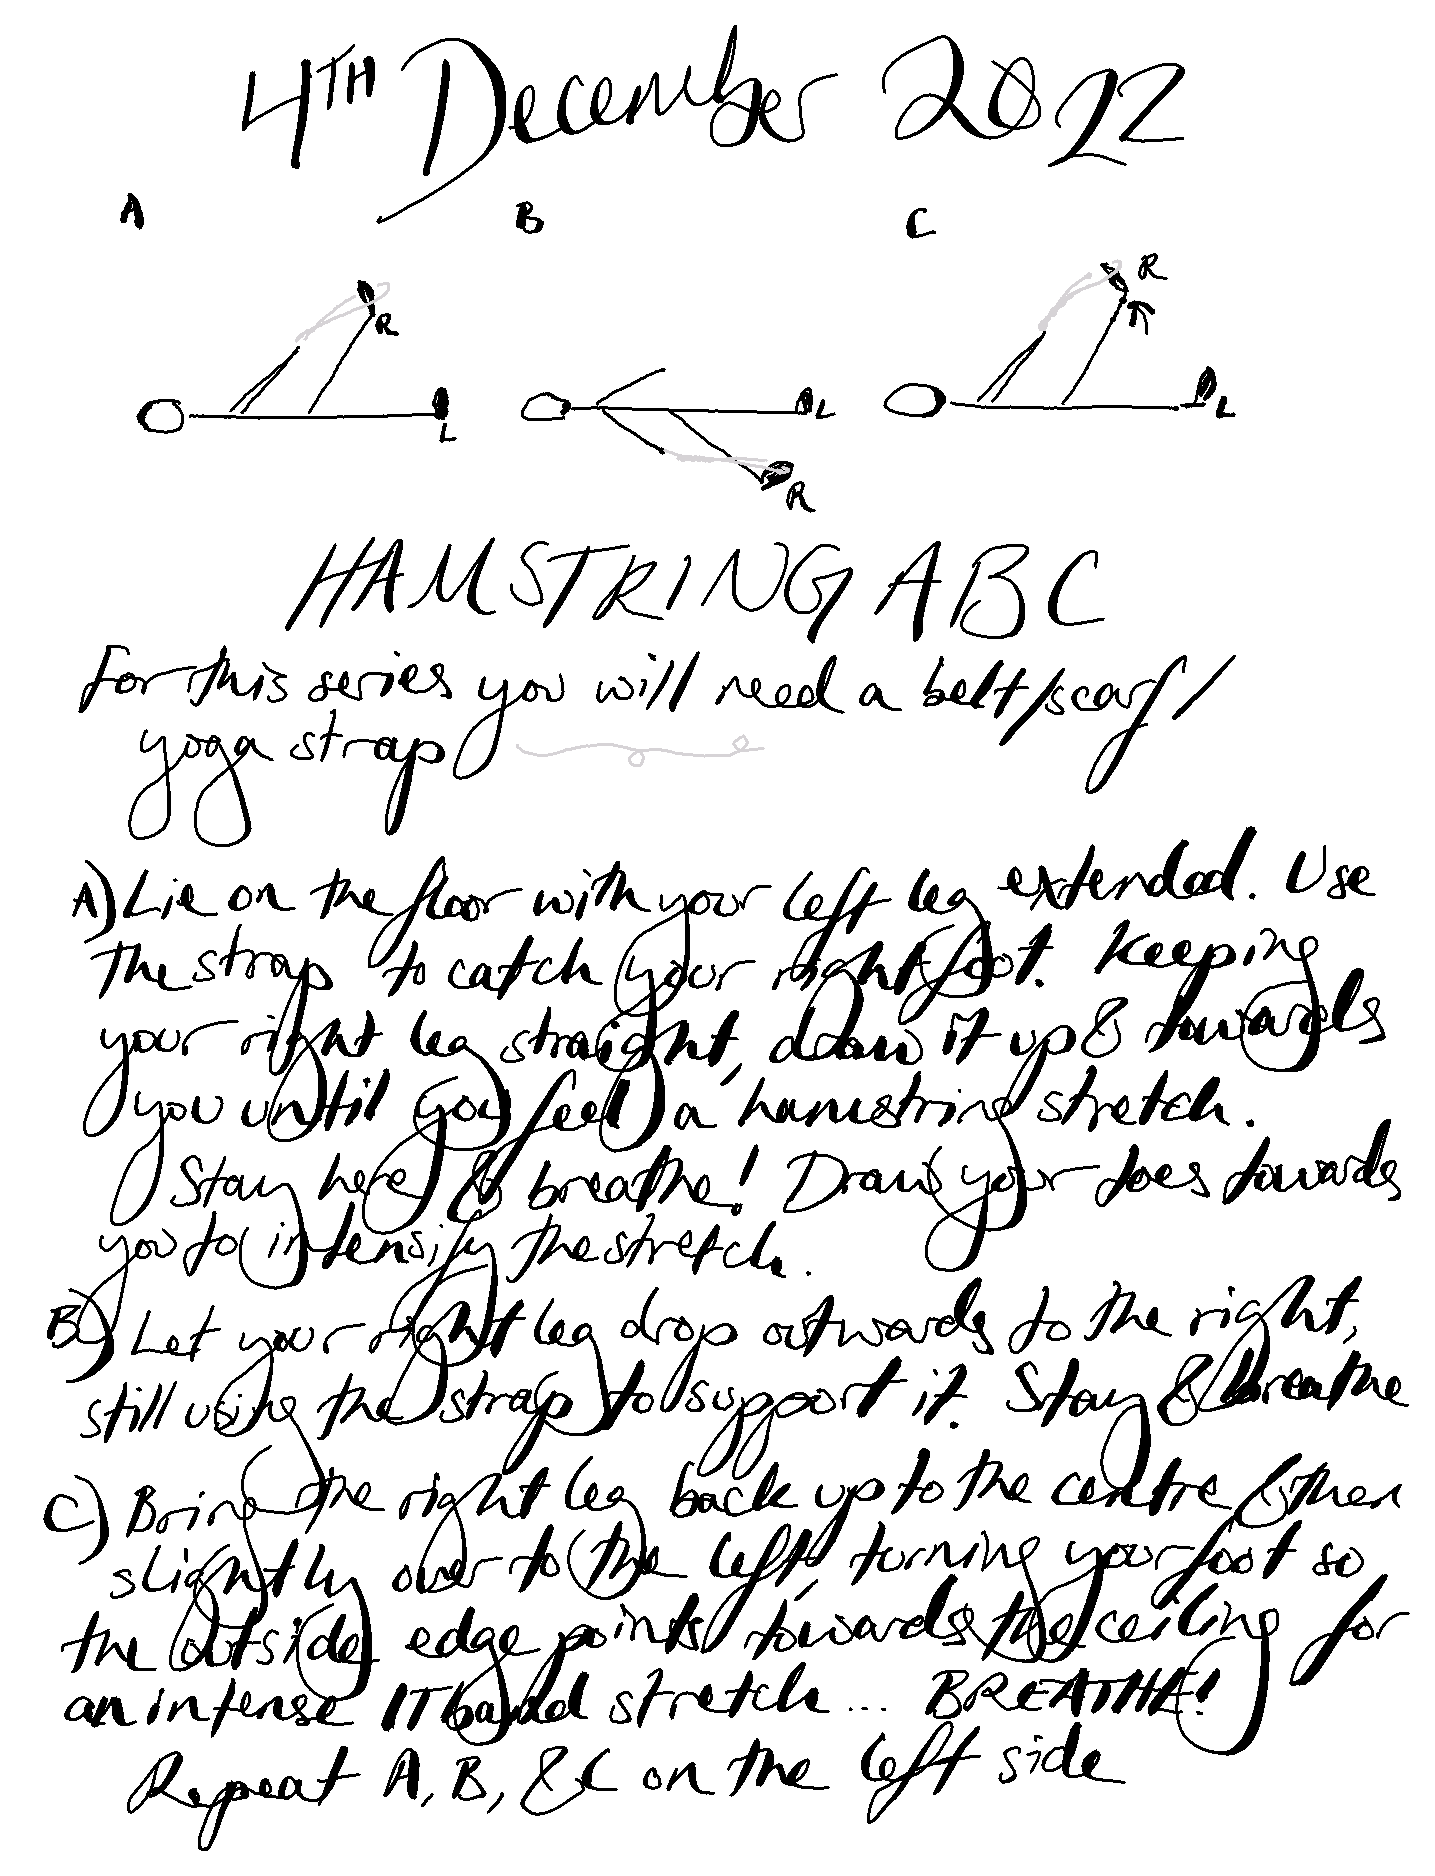 4TH December 2022
A B C
R L
L R
R L
HAMSTRING ABC
For this series you will need a belt/scarf/
yoga strap
A) Lie on the floor with your left leg extended. Use
the strap to catch your right foot. Keeping
your right leg straight, draw it up & towards
you until you feel a hamstring stretch.
Stay here & breathe! Draw your toes towards
you to intensify the stretch.
B) Let your right leg drop outwards to the right,
still using the strap to support it. Stay & breathe
C) Bring the right leg back up to the centre & then
slightly over to the left, turning your foot so
the outside edge points towards the ceiling for
an intense IT band stretch... BREATHE!
Repeat A, B, & C on the left side